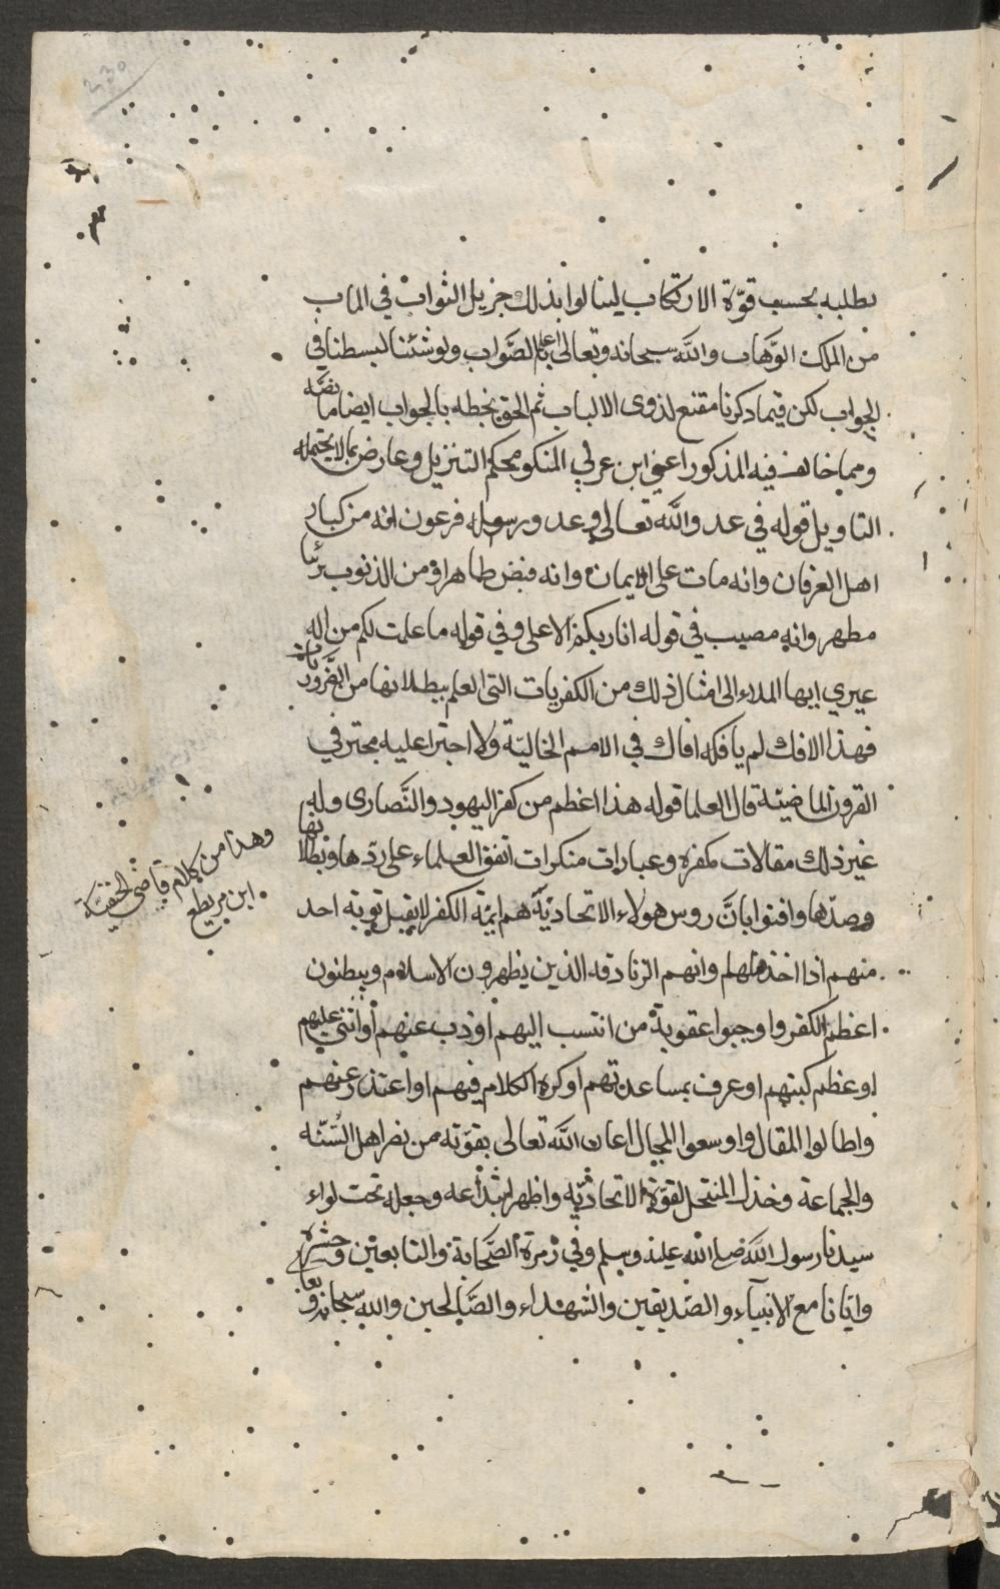 بطلبه بحسب قوّة الارتكاب لينالوا بذلك جزيل الثواب في الماب
من الملك الوهّاب واللّه سبحانه وتعالى اعلم بالصّواب ولو شئنا لبسطنا في
الجواب لكن فيما ذكرنا مقنع لذوى الالباب ثم الحق بخطه بالجواب ايضا ما نصّه
ومما خالف فيه المذكور اعني ابن عربي المنكو محكم التنزيل وعارض بما لا يحتمله
التاويل قوله في عدو اللّه تعالى وعدو رسوله فرعون انه من كبار
اهل العرفان وانه مات على الايمان وانه قبض طاهرا ومن الذنوب بريّا
مطهر وانه مصيب في قوله انا ربكم الاعلى وفي قوله ما علمت لكم من اله
غيري ايها الملاء الى امثال ذلك من الكفريات التى العلم ببطلانها من الضّروريات
فهذا الافك لم يافكه افاك في الامم الخاليّة ولا اجترا عليه مجتر في
القرون الماضيّة قال العلما قوله هذا اعظم من كفر اليهود والنّصارى وله
غير ذلك مقالات مكفره وعبارات منكرات اتفق العلماء على ردّها وبطلانها
وصدّها وافتوا بانّ روس هولاء الاتحاديّة هم ايمّة الكفر لا يقبل توبة احد
منهم اذا اخذ قبلها وانهم الزنادقه الذين يظهرون الاسلام ويبطنون
اعظم الكفر واوجبوا عقوبة من انتسب اليهم او ذب عنهم او اثنى عليهم
او عظم كتبهم او عرف بمساعدتهم او كره الكلام فيهم او اعتذر عنهم
واطالوا المقال واوسعوا المجال اعان اللّه تعالى بقوّته من نصر اهل السّنّه
والجماعة وخذل المنتحل لقوّة الاتحاديّه واظهر ابتداعه وجعله تحت لواء
سيدنا رسول اللّه صلى اللّه عليه وسلم وفي زمرة الصّحابة والتابعين وحشره
وايانا مع الانبيآء والصّديقين والشهداء والصّالحين والله سبحانه وتعا
وهذا من كلام قاضي الحنفيّة
ابن بريطع